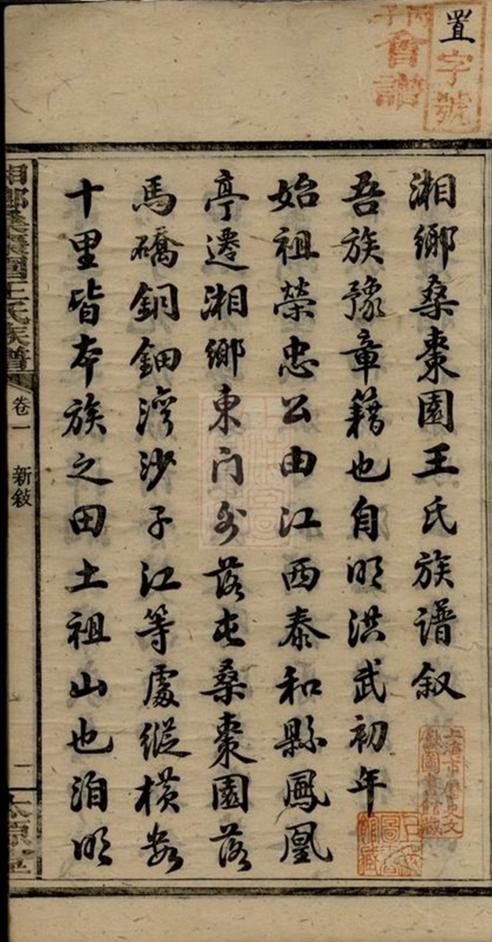 置字號
丙子
會譜
湘鄉桑棗園王氏族譜叙
吾族豫章籍也自明洪武初年
始祖榮忠公由江西泰和縣鳳凰
亭遷湘鄉東门外落屯桑棗園落
馬礄銅鈿灣沙子江等處縱橫数
十里皆本族之田土祖山也洎明
湘鄉桑棗園王氏族譜
卷一
新敘
一
太原堂